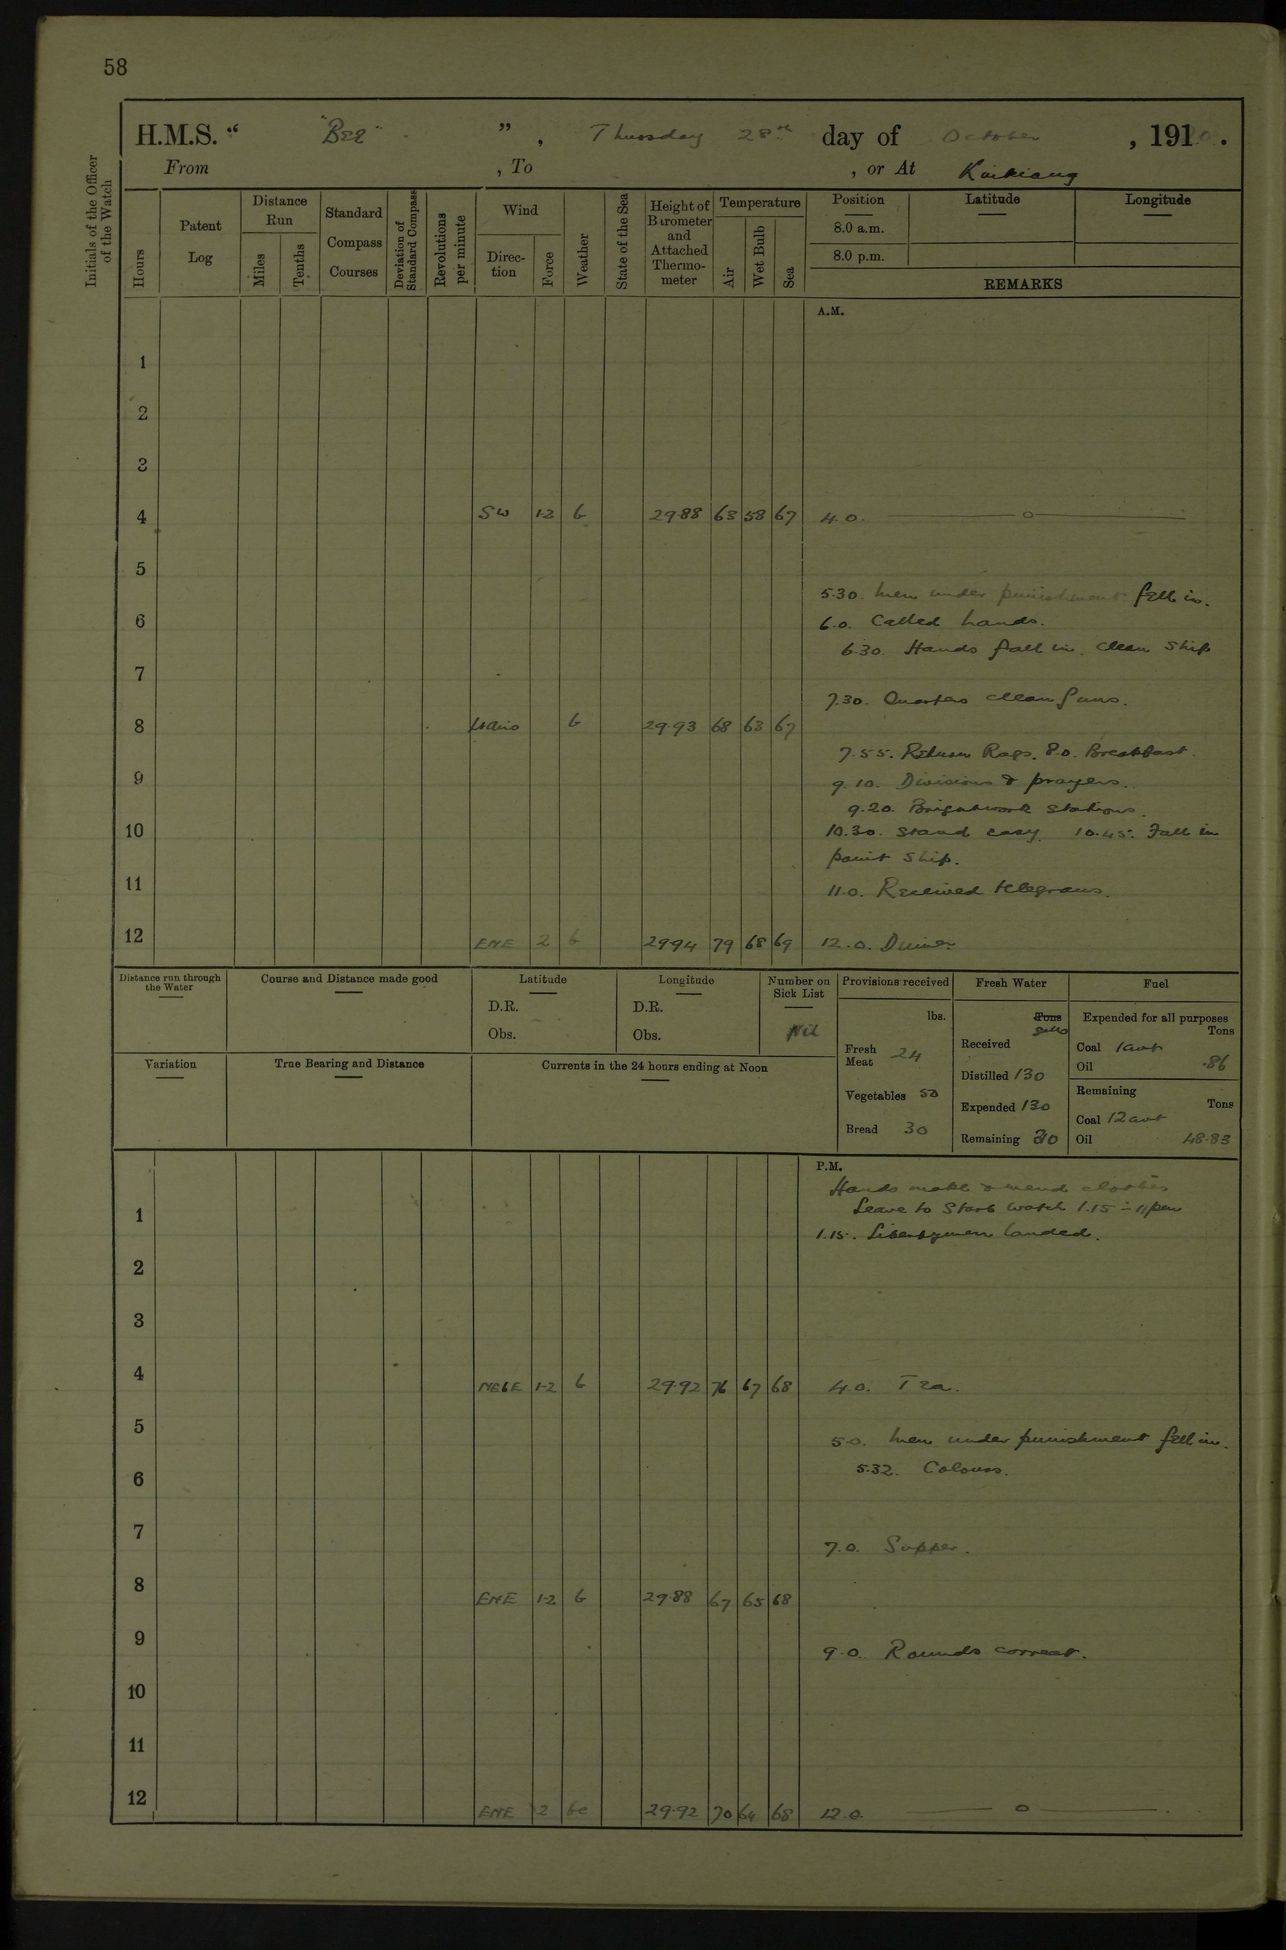 58
H.M.S. " "Bee" " , Thursday 28th day of October , 1920 .
From , To , or At Kiukiang
Initials of the Officer of the Watch
Hours
Patent Log
Distance Run
Miles
Tenths
Standard Compass Courses
Deviation of Standard Compass
Revolutions per minute
Wind
Direction
Force
Weather
State of the Sea
Height of Barometer and Attached Thermometer
Temperature
Air
Wet Bulb
Sea
Position Latitude Longitude
8.0 a.m.
8.0 p.m.
REMARKS
A.M.
1
2
3
4 SW 1-2 b 29.88 63 58 67 4.0.
5
5.30. Men under punishment fell in.
6 6.0. Called hands.
6.30. Hands fall in. Clean Ship
7
7.30. Quarters clean guns.
8 b 29.93 68 63 67
7.55. Return Rags. 8.0. Breakfast.
9 9.10. Divisions & prayers.
9.20. Brightwork stations.
10 10.30. Stand easy. 10.45. Fall in
paint ship.
11 11.0. Received telegrams.
12 ENE 2 b 29.94 79 68 69 12.0. Dinner
Distance run through the Water
Course and Distance made good
Latitude
D.R.
Obs.
Longitude
D.R.
Obs.
Number on Sick List
Nil
Variation
True Bearing and Distance
Currents in the 24 hours ending at Noon
Provisions received
lbs.
Fresh Meat 24
Vegetables 50
Bread 30
Fresh Water
Tons
galls
Received
Distilled 130
Expended 130
Remaining
Fuel
Expended for all purposes
Tons
Coal 1 cwt
Oil .86
Remaining
Tons
Coal 12 cwt
Oil 48.83
P.M.
Hands make & mend clothes
1 Leave to Starb watch 1.15 - 11 pm
1.15. Libertymen landed.
2
3
4 NEbE 1-2 b 29.92 76 67 68 4.0. Tea.
5 5.0. Men under punishment fell in.
6 5.32. Colours.
7 7.0. Supper.
8 ENE 1-2 b 29.88 67 65 68
9 9.0. Rounds correct.
10
11
12 ENE 2 bc 29.92 70 64 68 12.0.